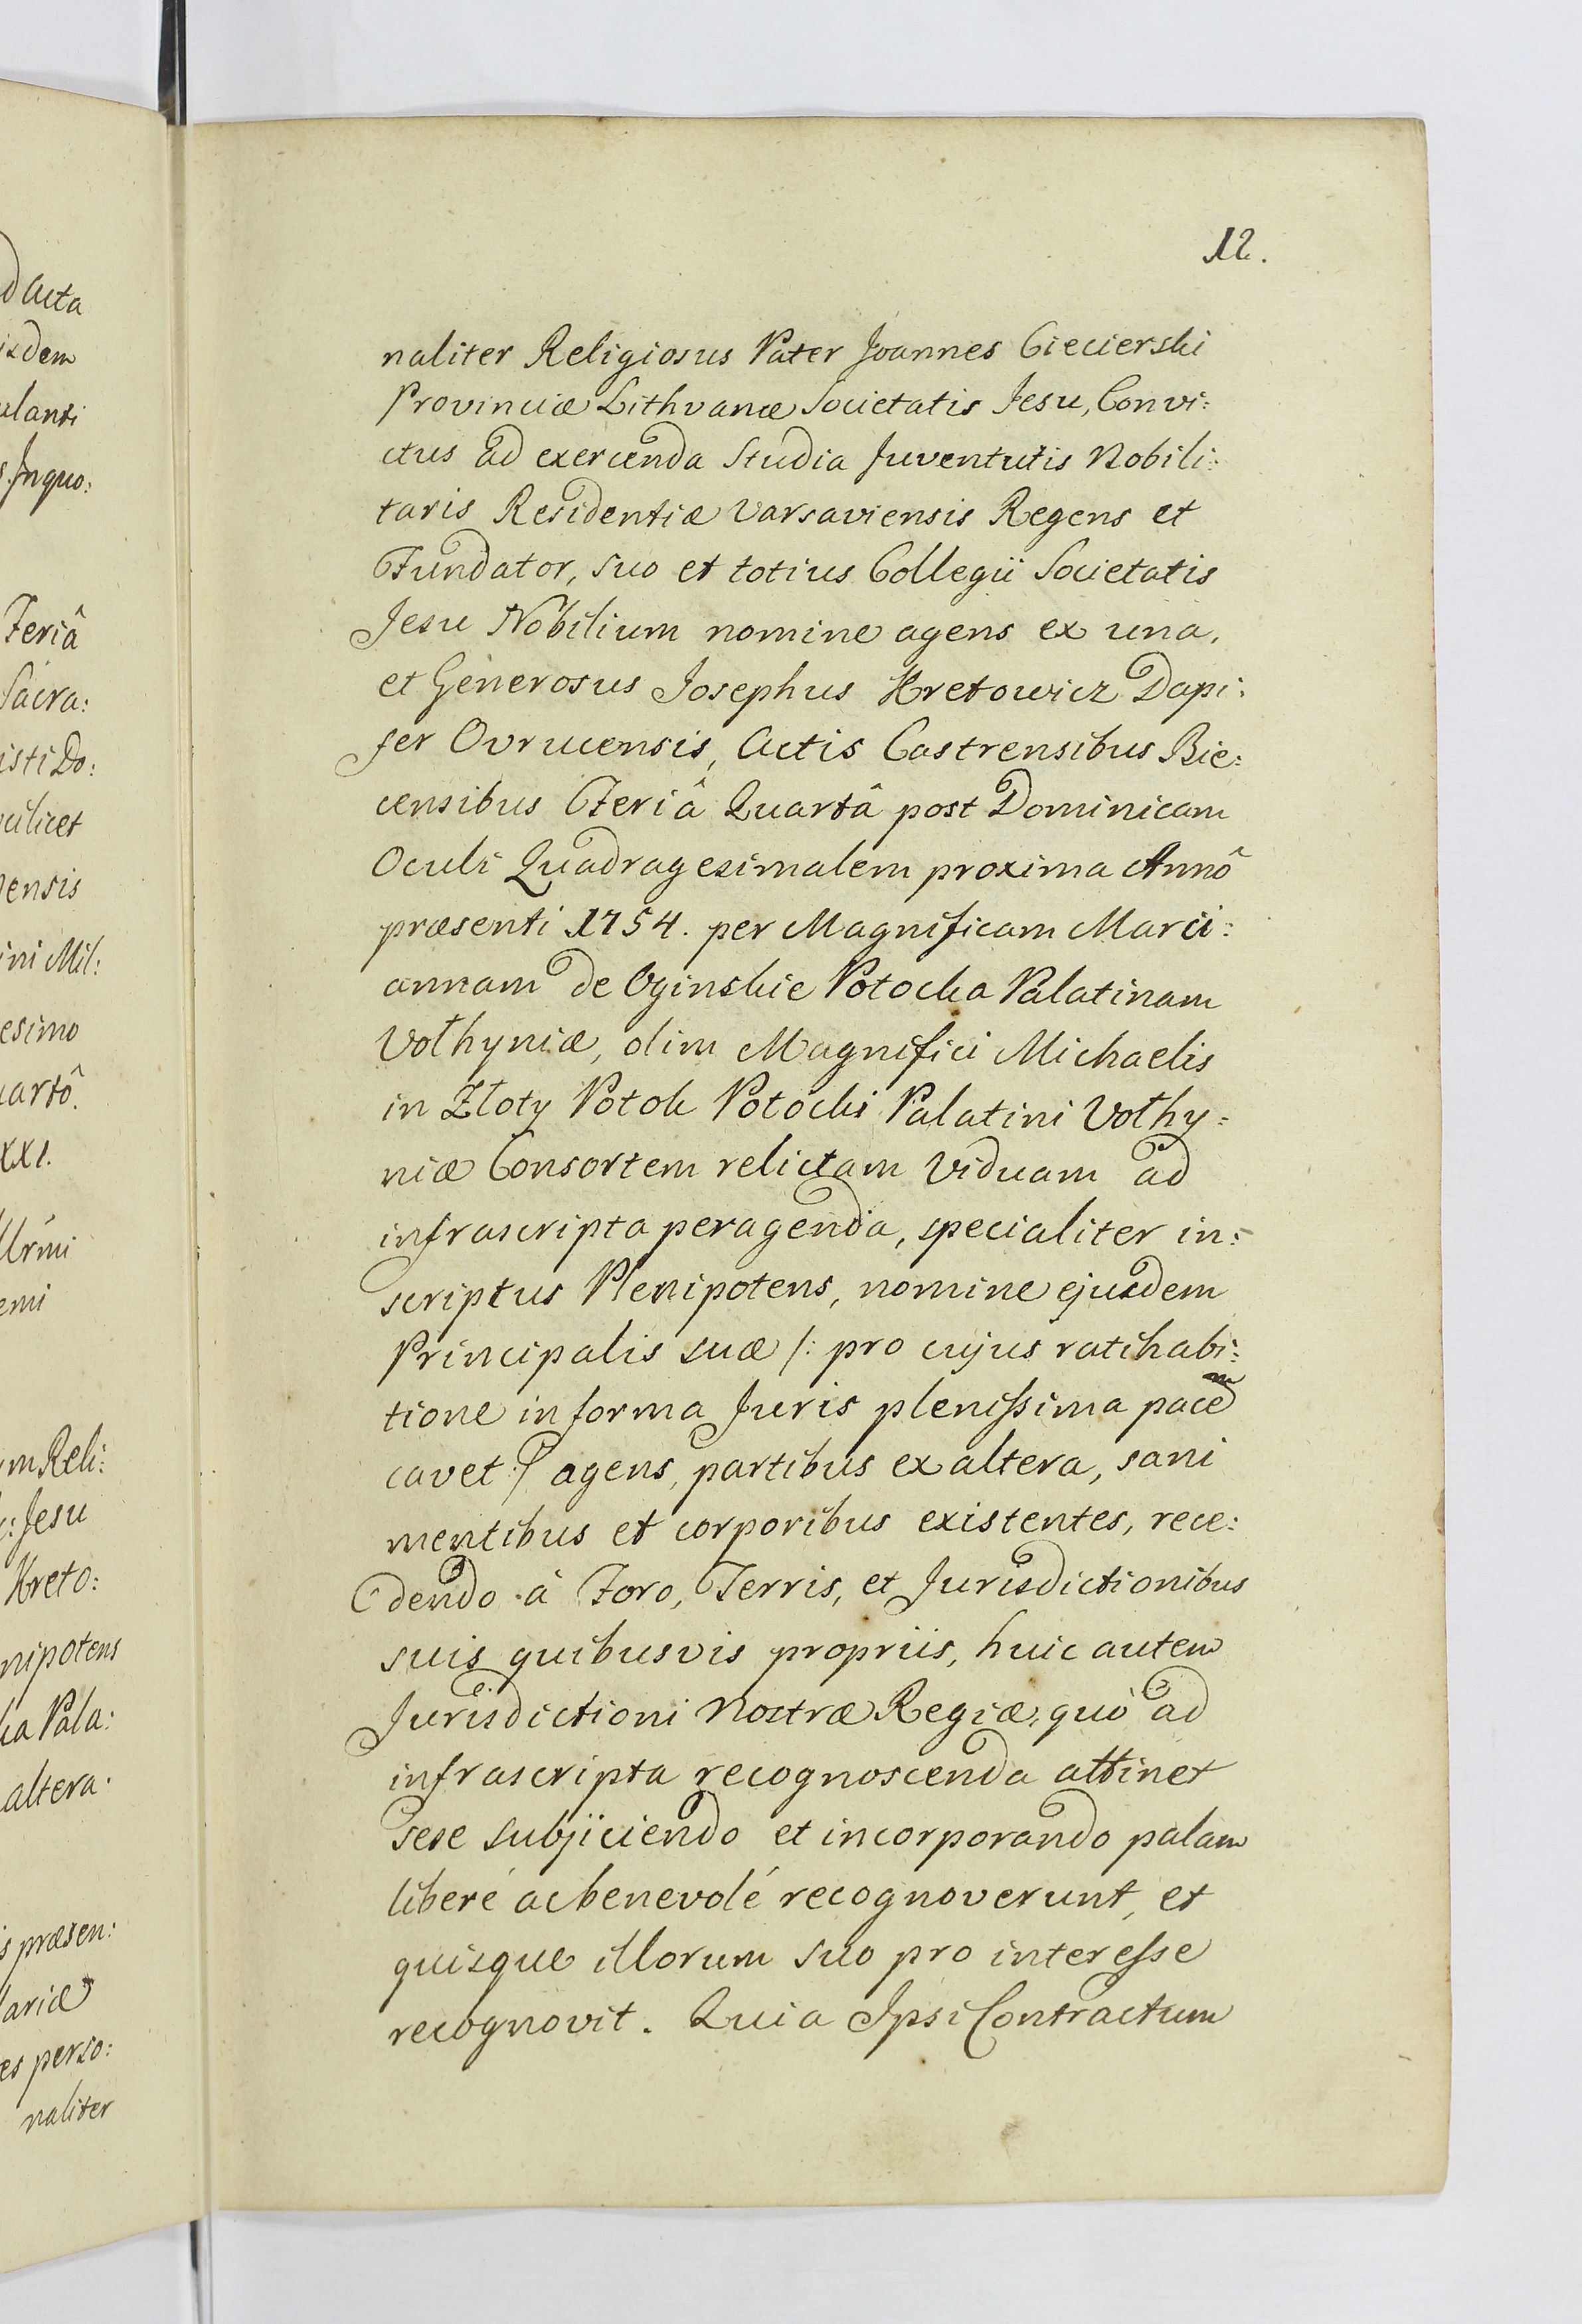 d Acta
isdem
ulanti
s. In quo:
Feriâ
Sacra:
isti Do:
cilicet
ensis
ini Mil:
esimo
artô.
XXI.
emi
m Reli:
: Jesu
Kreto:
nipotens
ka Pala:
altera.
s præsen:
lariæ
es perso:
naliter
12.
naliter Religiosus Pater Joannes Ciecierski
Provinciæ Lithvanæ Societatis Jesu, Convi:
ctus ad exercenda Studia Juventutis Nobili:
taris Residentiæ Varsaviensis Regens et
Fundator, suo et totius Collegii Societatis
Jesu Nobilium nomine agens ex una,
et Generosus Josephus Kretowicz Dapi:
fer Ovrucensis, Actis Castrensibus Bie:
censibus Feriâ Quartâ post Dominicam
Oculi Quadragesimalem proxima Annô
præsenti 1754. per Magnificam Marci:
annam de Oginskie Potocka Palatinam
Vołhyniæ, olim Magnifici Michaelis
in Złoty Potok Potocki Palatini Vołhy:
niæ Consortem relictam Viduam ad
infrascripta peragenda, specialiter in:
scriptus Plenipotens, nomine ejusdem
Principalis suæ /: pro cujus ratihabi:
tione in forma Juris plenissima pacem
cavet :/ agens, partibus ex altera, sani
mentibus et corporibus existentes, rece:
dendo à Foro, Terris, et Jurisdictionibus
suis quibusvis propriis, huic autem
Jurisdictioni Nostræ Regiæ, quò ad
infrascripta recognoscenda attinet
sese subjiciendo et incorporando palam
liberé ac benevolé recognoverunt, et
quisque illorum suo pro interesse
recognovit. Quia Ipsi Contractum